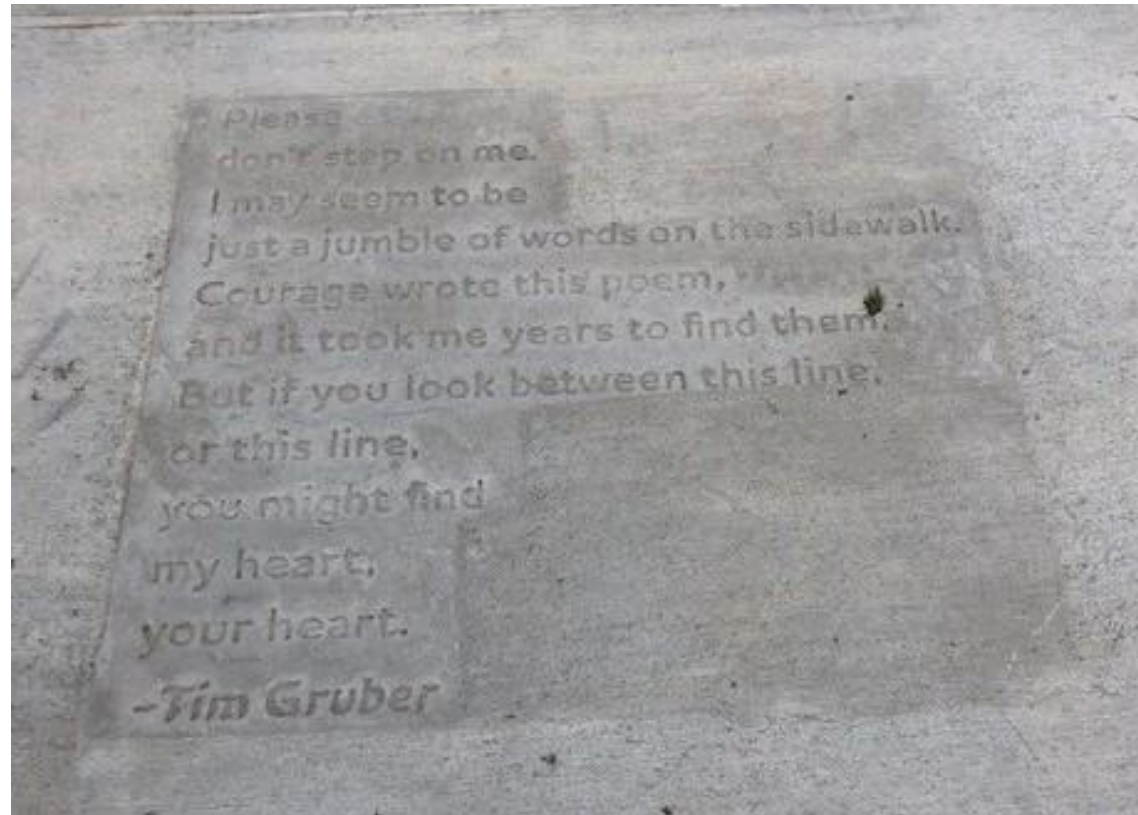 Please
don't step on me.
I may seem to be
just a jumble of words on the sidewalk.
Courage wrote this poem,
and it took me years to find them.
But if you look between this line,
or this line,
you might find
my heart,
your heart.
-Tim Gruber